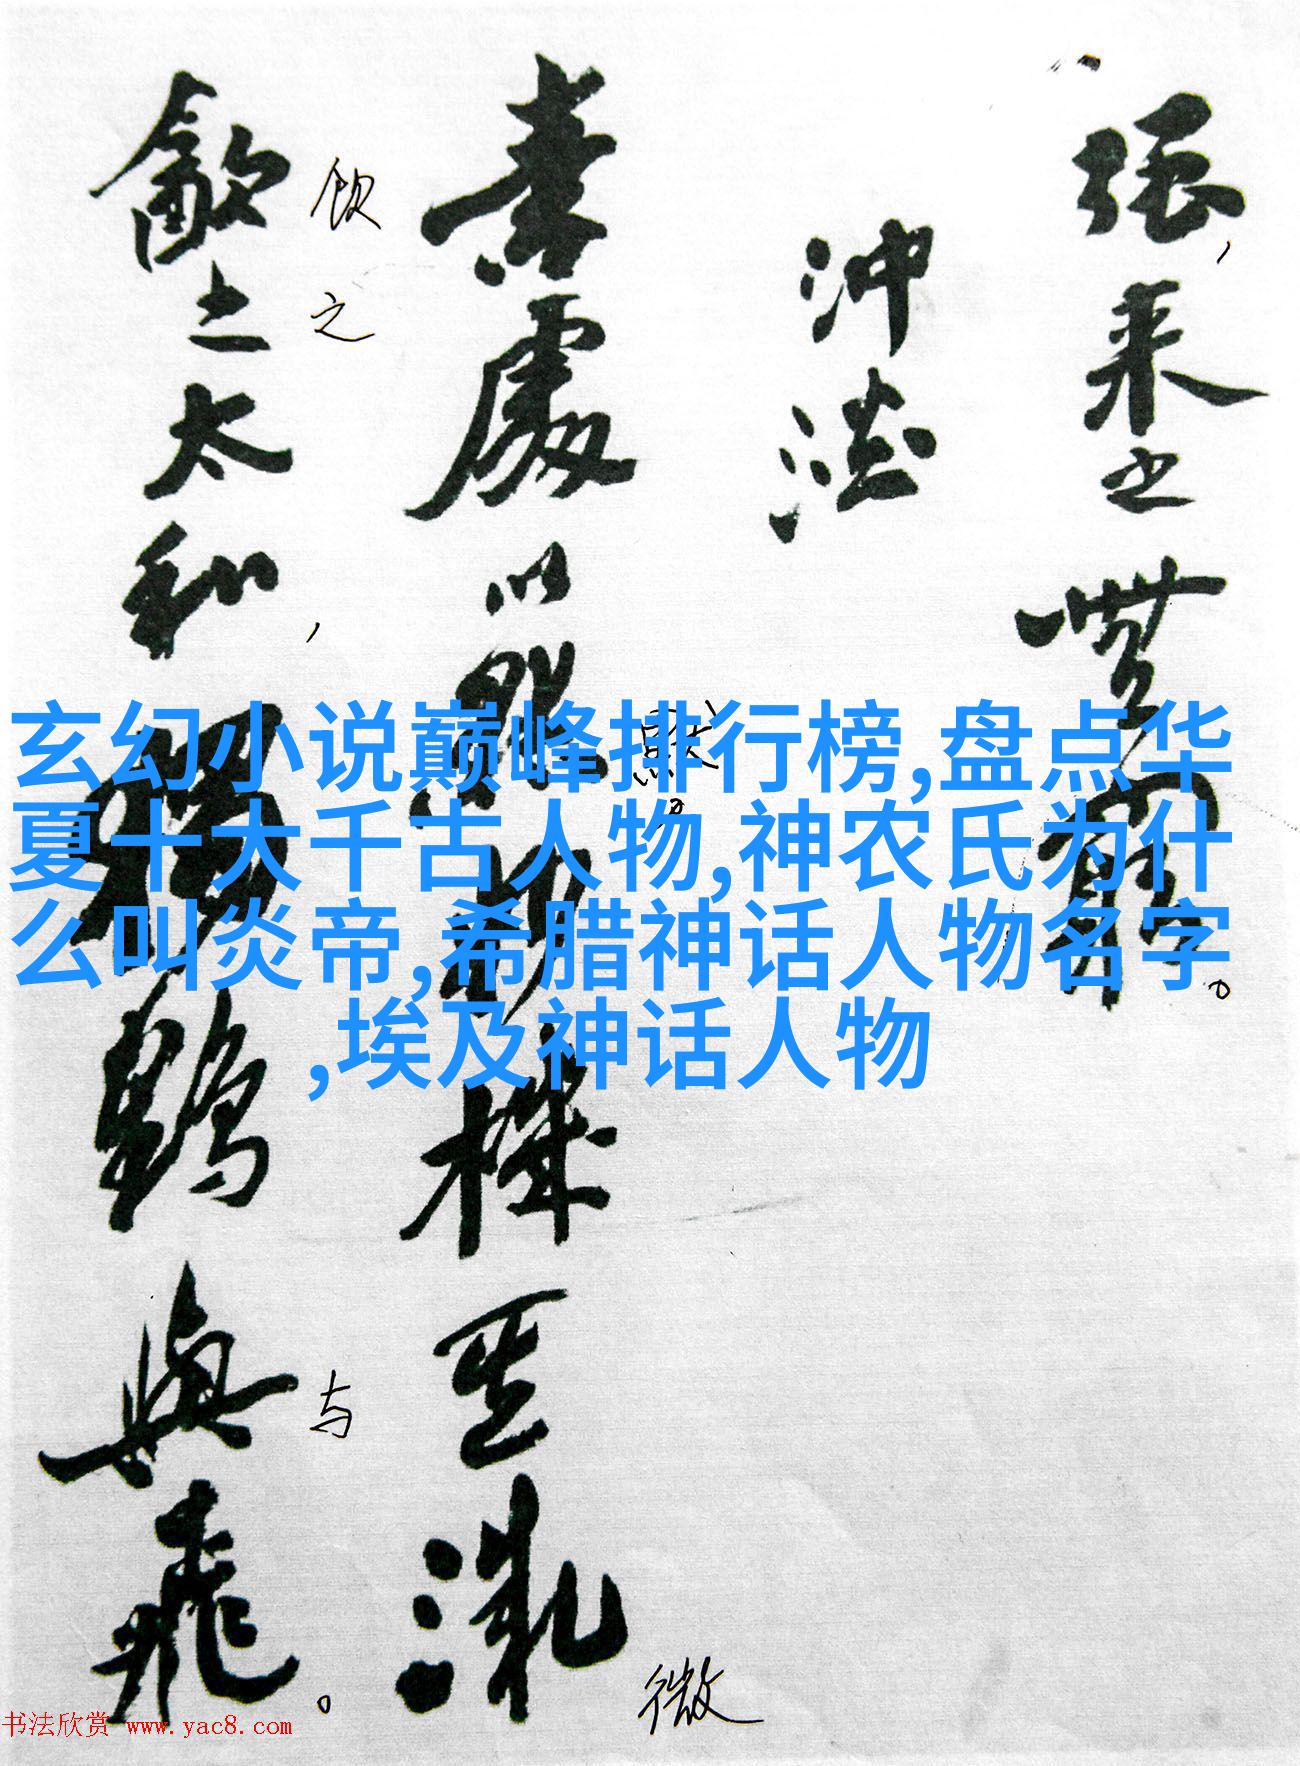 强,来之無窮。
沖澹
素處以默妙機其微
默。
微
飲之太和,獨鶴與飛。
饮
之
与
玄幻小说巅峰排行榜,盘点华
夏十大千古人物,神农氏为什
么叫炎帝,希腊神话人物名字
,埃及神话人物
书法欣赏 www.yac8.com